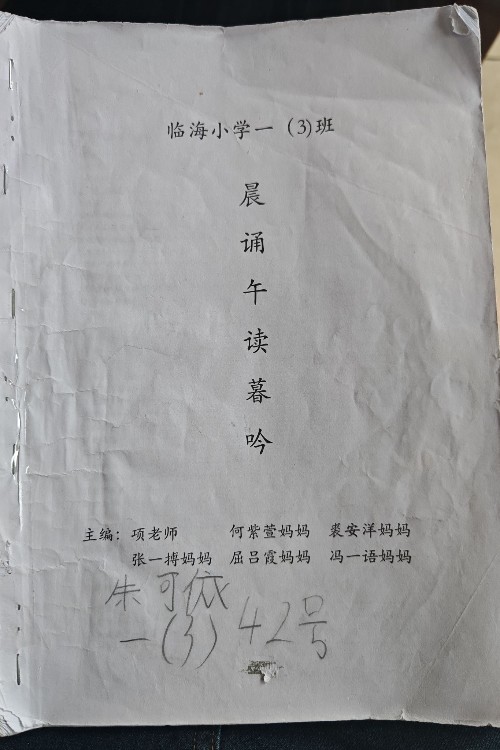 临海小学一（3)班
晨诵午读暮吟
主编：项老师 何紫萱妈妈 裘安洋妈妈
张一搏妈妈 屈吕霞妈妈 冯一语妈妈
朱可依
一(3) 42号